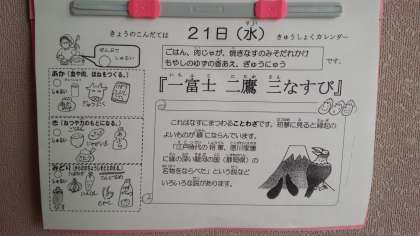 きょうのこんだては 21日(水) きゅうしょくカレンダー
ごはん、肉じゃが、焼きなすのみそだれかけ
もやしのゆずの香あえ、ぎゅうにゅう
『一富士 二鷹 三なすび』
これはなすにまつわることわざです。初夢に見ると縁起の
よいものが順にならんでいます。
「江戸時代の将軍、徳川家康
に縁の深い駿河の国(静岡県)の
名物をならべた」という説など
いろいろな説があります。
ぜんぶで
しゅるい
あか(血や肉、ほねをつくる。)
しゅるい
き(ねつや力のもとになる。)
しゅるい
みどり
しゅるい